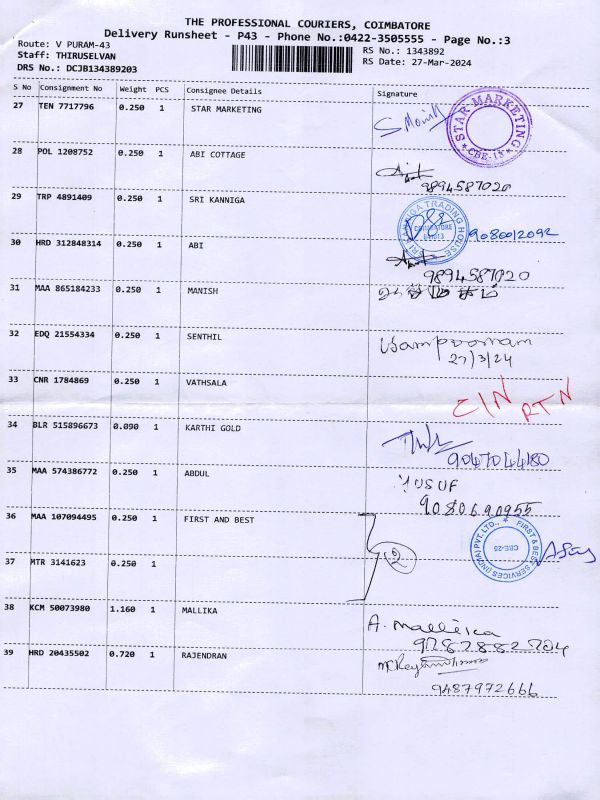 THE PROFESSIONAL COURIERS, COIMBATORE
Delivery Runsheet - P43 - Phone No.:0422-3505555 - Page No.:3
Route: V PURAM-43
RS No.: 1343892
Staff: THIRUSELVAN
RS Date: 27-Mar-2024
DRS No.: DCJB134389203
S No Consignment No Weight PCS Consignee Details Signature
27 TEN 7717796 0.250 1 STAR MARKETING
STAR MARKETING
* CBE-15 *
28 POL 1208752 0.250 1 ABI COTTAGE
9894587020
29 TRP 4891409 0.250 1 SRI KANNIGA
SRI KANNIGA TRADING HOUSE
COIMBATORE
9080012092
30 HRD 312848314 0.250 1 ABI
9894587020
31 MAA 865184233 0.250 1 MANISH
32 EDQ 21554334 0.250 1 SENTHIL
27/3/24
33 CNR 1784869 0.250 1 VATHSALA
CIN RTN
34 BLR 515896673 0.090 1 KARTHI GOLD
9047044180
35 MAA 574386772 0.250 1 ABDUL
YUSUF
9080690955
36 MAA 107094495 0.250 1 FIRST AND BEST
FIRST & BEST SERVICES (INDIA) PVT. LTD., *
CBE-25
37 MTR 3141623 0.250 1
38 KCM 50073980 1.160 1 MALLIKA
A. Mallika
39 HRD 20435502 0.720 1 RAJENDRAN
9487972666